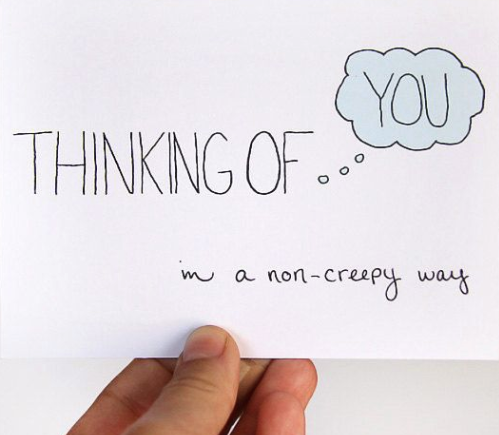 YOU
THINKING OF...
in a non-creepy way